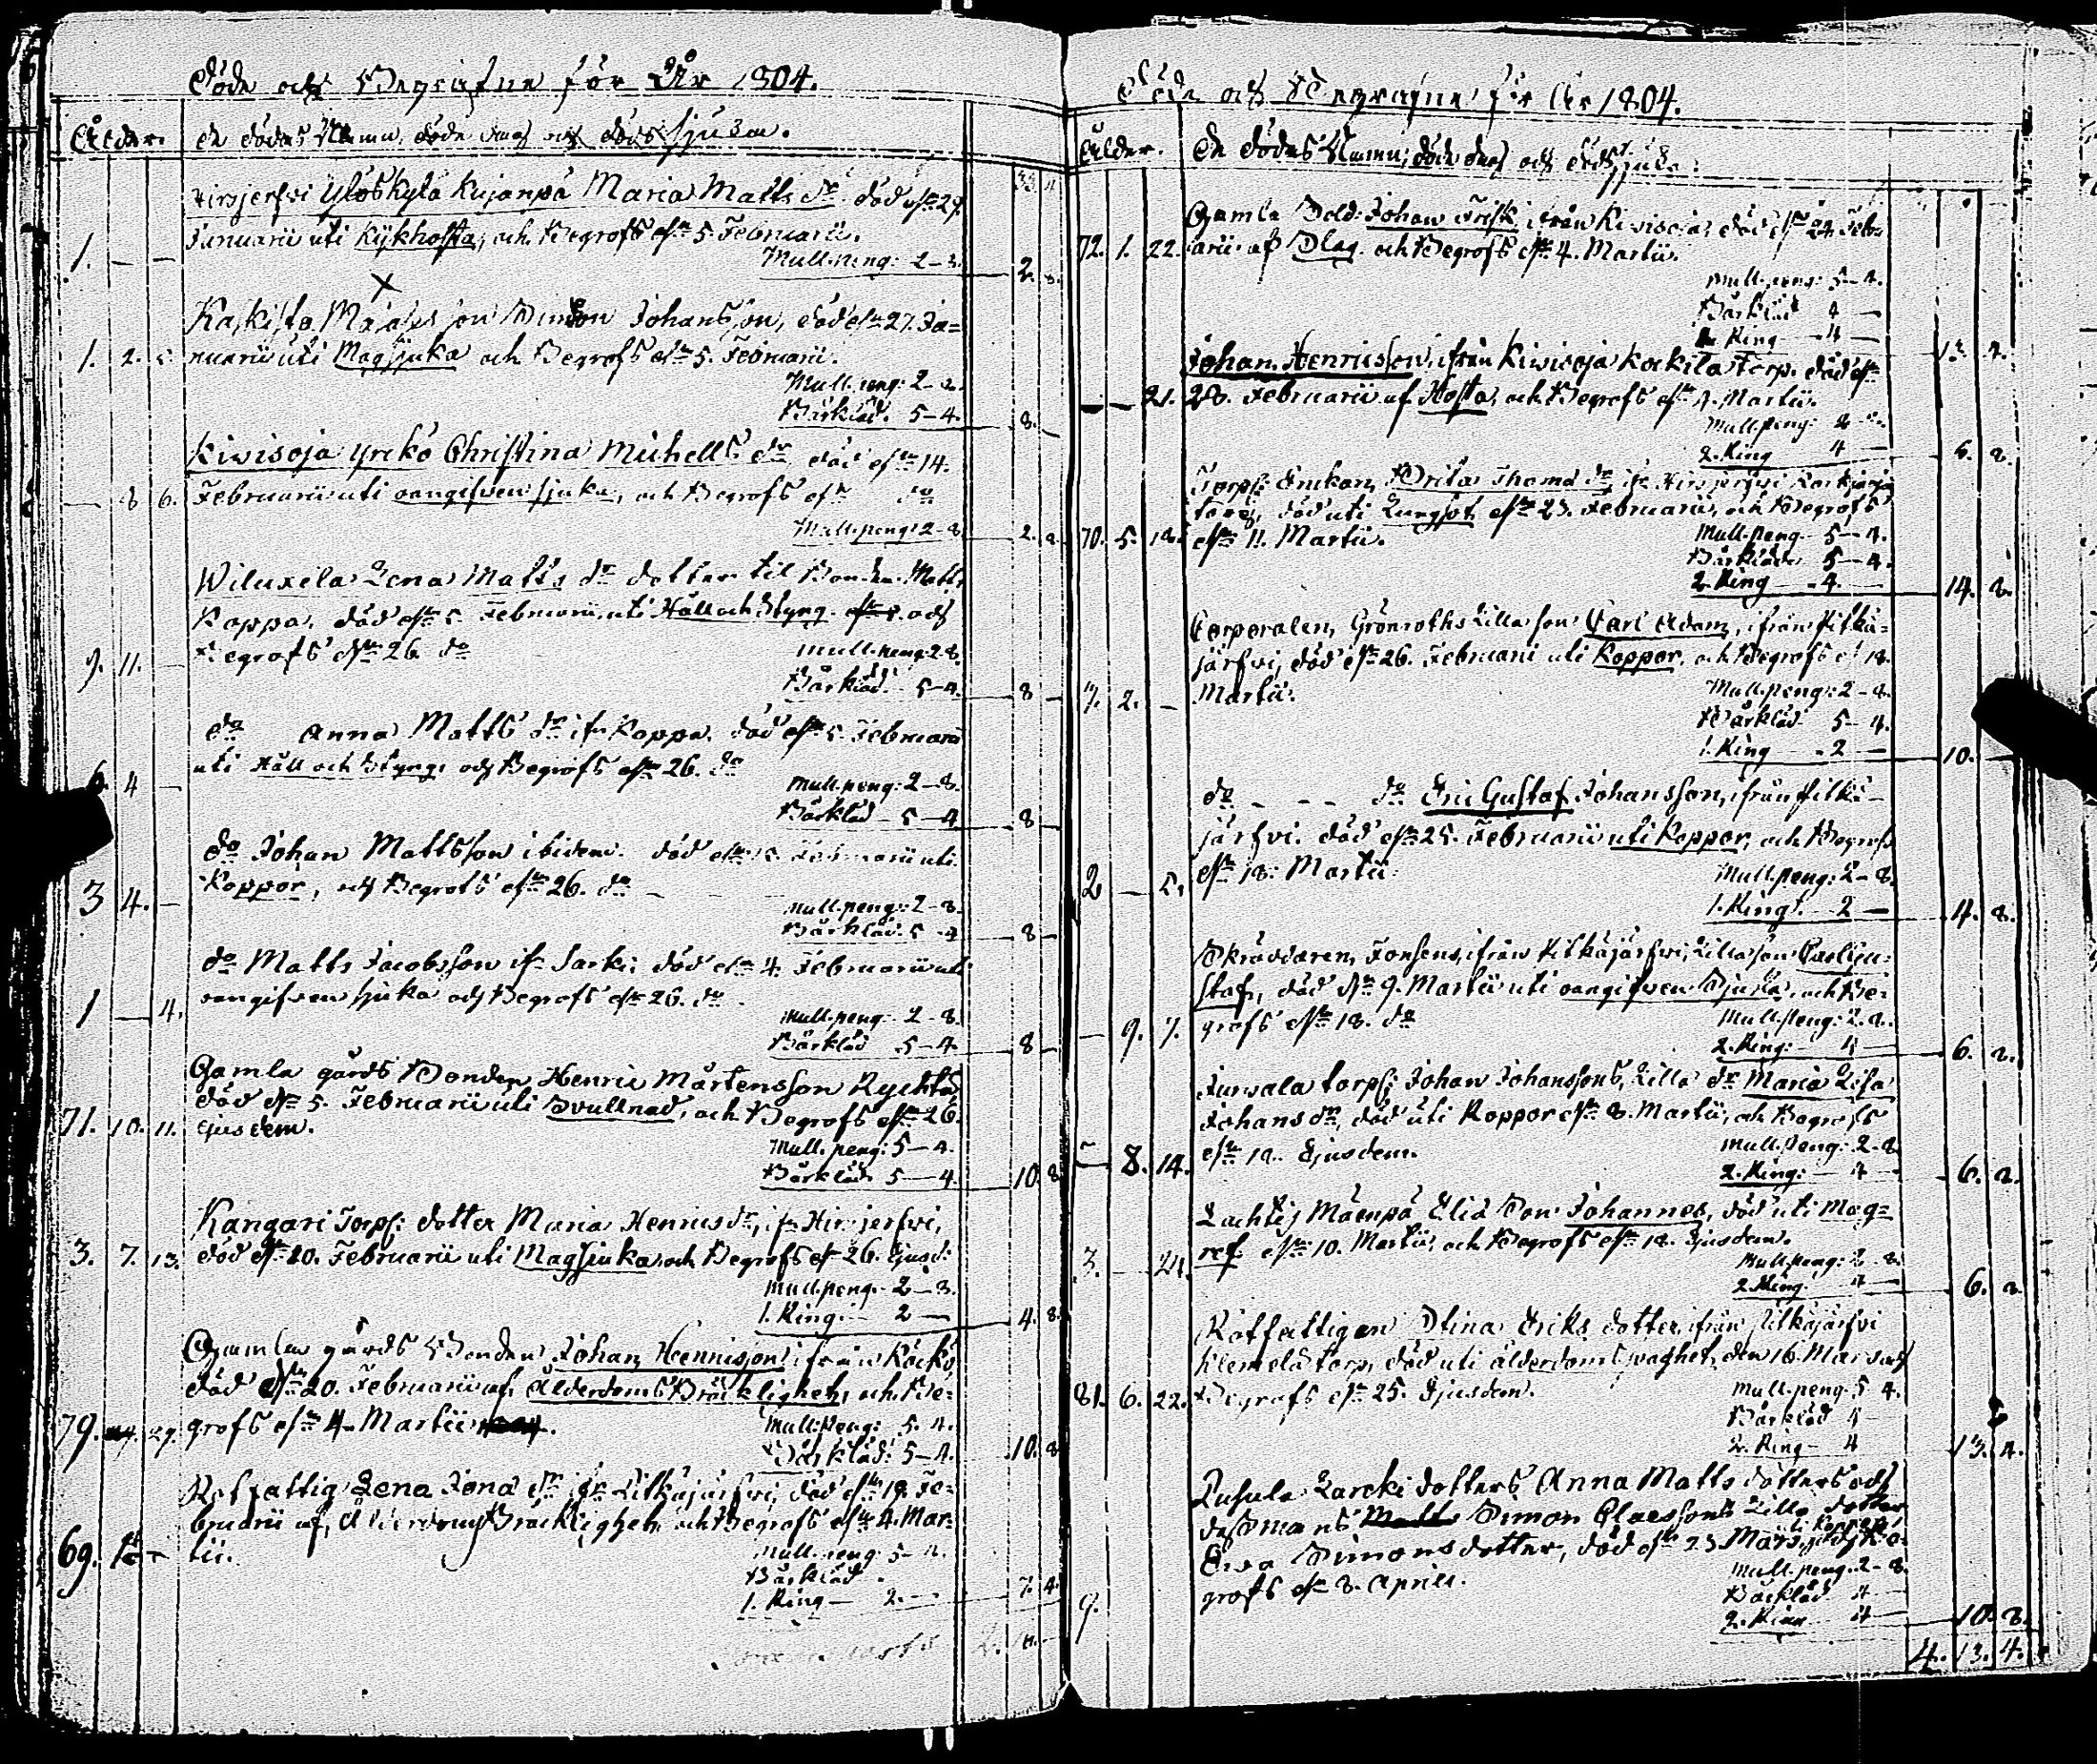 Döde och Begrafne för År 1804.
Ålder. De dödas Namn, döde dag och dödssjukm.
Hirsjerfvi Ylöskylä Kujanpä Maria Matts dr död d. 29.
Januarii uti Kykhosta, och Begrofs d. 5 Februarii.
1. — —
Mull.peng: 2–8. 2. 8.
Johansson, död d. 27. Ja=
1. 2. nuarii uti Magsjuka och Begrofs d. 5. Februarii.
Mull.peng: 2–8.
Bårkläd. 5–4. 8.
Kivisoja Yrkö Christina Michells dr död d. 14.
— 8 6. Februarii uti oangifven sjuka, och Begrofs d. do
Mull.peng: 2–8. 2. 8.
Wiluxela Lena Matts dr dotter til Bonden Matts
Koppa, död d. 5. Februarii, uti Håll och Styng och
Begrofs d. 26. do
9. 11. —
Mull.peng: 2–8.
Bårkläd. 5–4. 8 —
do Anna Matts dr ifr Koppa. död d. 5. Februarii
uti Håll och Styng, och Begrofs d. 26. do
6. 4 —
Mull.peng: 2–8.
Bårkläd – 5–4 8
do Johan Mattsson ibidem. död d. Februarii uti
Koppor, och Begrofs d. 26. do
3 4. —
Mull.peng: 2–8.
Bårkläd. 5–4 8 —
do Matts Jacobsson ifr Sarki. död d. 4. Februarii uti
oangifven sjuka och Begrofs d. 26. do
1 — 4.
Mull.peng: 2–8.
Bårkläd 5–4. 8
Gamla gårds Bonden Henric Mårtensson Rychtä
död d. 5. Februarii uti Svullnad, och Begrofs d. 26.
71. 10. 11. ejusdem.
Mull.peng: 5–4.
Bårkläd 5–4. 10. 8
Kangari Torps: dotter Maria Henrics dr, ifr Hirsjerfvi,
3. 7. 13. död d. 20. Februarii uti Magsjuka och Begrofs d. 26. Ejusd:
Mull.peng: 2–8.
1. Ring: 2 — 4. 8.
Gamla gårds Bonden Johan Hennisson ifrån Käckö
död d. 20. Februarii af Ålderdoms Bräcklighet, och Be=
79. 29. grofs d. 4. Martii
Mull:Peng: 5. 4.
Bårkläd: 5–4. 10. 8
Rotfattig Lena Jona dr ifr Pitkäjärfvi, död d. 19. Fe=
bruarii af Ålderdoms Bräcklighet och Begrofs d. 4. Mar=
69. tii.
Mull.peng: 5–4.
Bårkläd
1. Ring — 2. — 7. 4.
Döde och Begrafne för År 1804.
Ålder. De dödas Namn, döde dag och dödssjuka.
Gamla Sold: Johan Frisk ifrån Kivisoja, död d. 22. Febr=
72. 1. 22. uarii af Slag. och Begrofs d. 4. Martii.
Mull.peng: 5–4.
Bårkläd 4 —
2. Ring — 4 — 13. 4.
Johan Henricsson, ifrån Kivisoja Kockila Torp. död d.
— — 21. 28. Februarii af Hosta, och Begrofs d. 4. Martii.
Mull.peng: 2–8.
2. Ring 4 — 6. 8.
Torps: Enkan, Brita Thoma dr, ifr Hirsjerfvi
död uti Lungsot d. 23. Februarii, och Begrofs
70. 5. 18. d. 11. Martii.
Mull.peng 5–4.
Bårkläde 5–4.
2. Ring — 4. — 14. 8.
Corporalen, Grönroths Lilla son Carl Adam, ifrån Pitkä=
järfvi, död d. 26. Februarii uti Koppor, och Begrofs d. 18.
7. 2. — Martii.
Mull.peng: 2–8.
Bårkläd 5–4.
1. Ring — 2 — 10. —
do – – – do Eric Gustaf Johansson, ifrån Pitkä–
järfvi. död d. 25. Februarii uti Koppor, och Begrofs
2 — 5. d. 18. Martii
Mull.peng: 2–8.
1. Ring: — 2 — 4. 8.
Skräddaren, Fonsens, ifrån Pitkäjärfvi, Lilla son Carl Gu=
staf, död d. 9. Martii uti oangifven Sjuka, och Be=
— 9. 7. grofs d. 18. do
Mull.Peng: 2–8.
2. Ring: — 4 — 6. 8.
Jurvala torps: Johan Johanssons, Lilla dr Maria Lisa
Johans dr, död uti Koppor d. 8. Martii, och Begrofs
— 8. 14. d. 18. Ejusdem.
Mull.Peng: 2–8
2. Ring: — 4 — 6. 8.
Lachtis Mäenpä Eliæ Son Johannes, död uti Mag=
3. — 24. ref d. 10. Martii, och Begrofs d. 18. Ejusdem.
Mull.peng: 2–8.
2. Ring: 4 — 6. 8
Rotfattigen Stina Eriks dotter, ifrån Pitkäjärfvi
Klemelä torp, död uti ålderdoms svaghet, den 16. Mars och
81. 6. 22. Begrofs d. 25. Ejusdem.
Mull.peng. 5 4.
Bårkläd 4 —
2. Ring — 4 13. 4.
Lusula Larcki dotters Anna Matts dotters och
dess mans Simon Claessons Lilla dotter
Ewa Simons dotter, död d. 23 Mars uti Koppor, och Be=
grofs d. 8. Aprill.
9.
Mull.peng. 2–8.
Bårkläd 4 —
2. Ring 4 — 10. 8.
4. 13. 4.